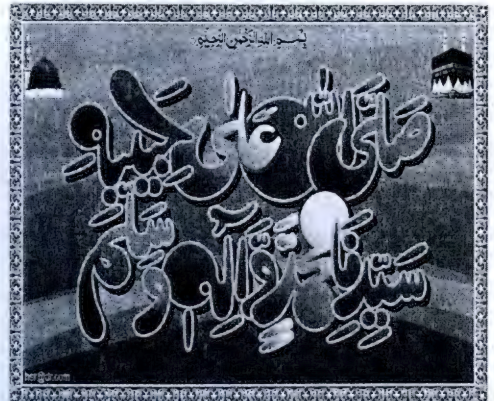 بسم الله الرحمن الرحيم
صَلَّى اللهُ عَلٰى حَبِيبِهٖ
سَيِّدِنَا مُحَمَّدٍ وَّاٰلِهٖ وَسَلَّمَ